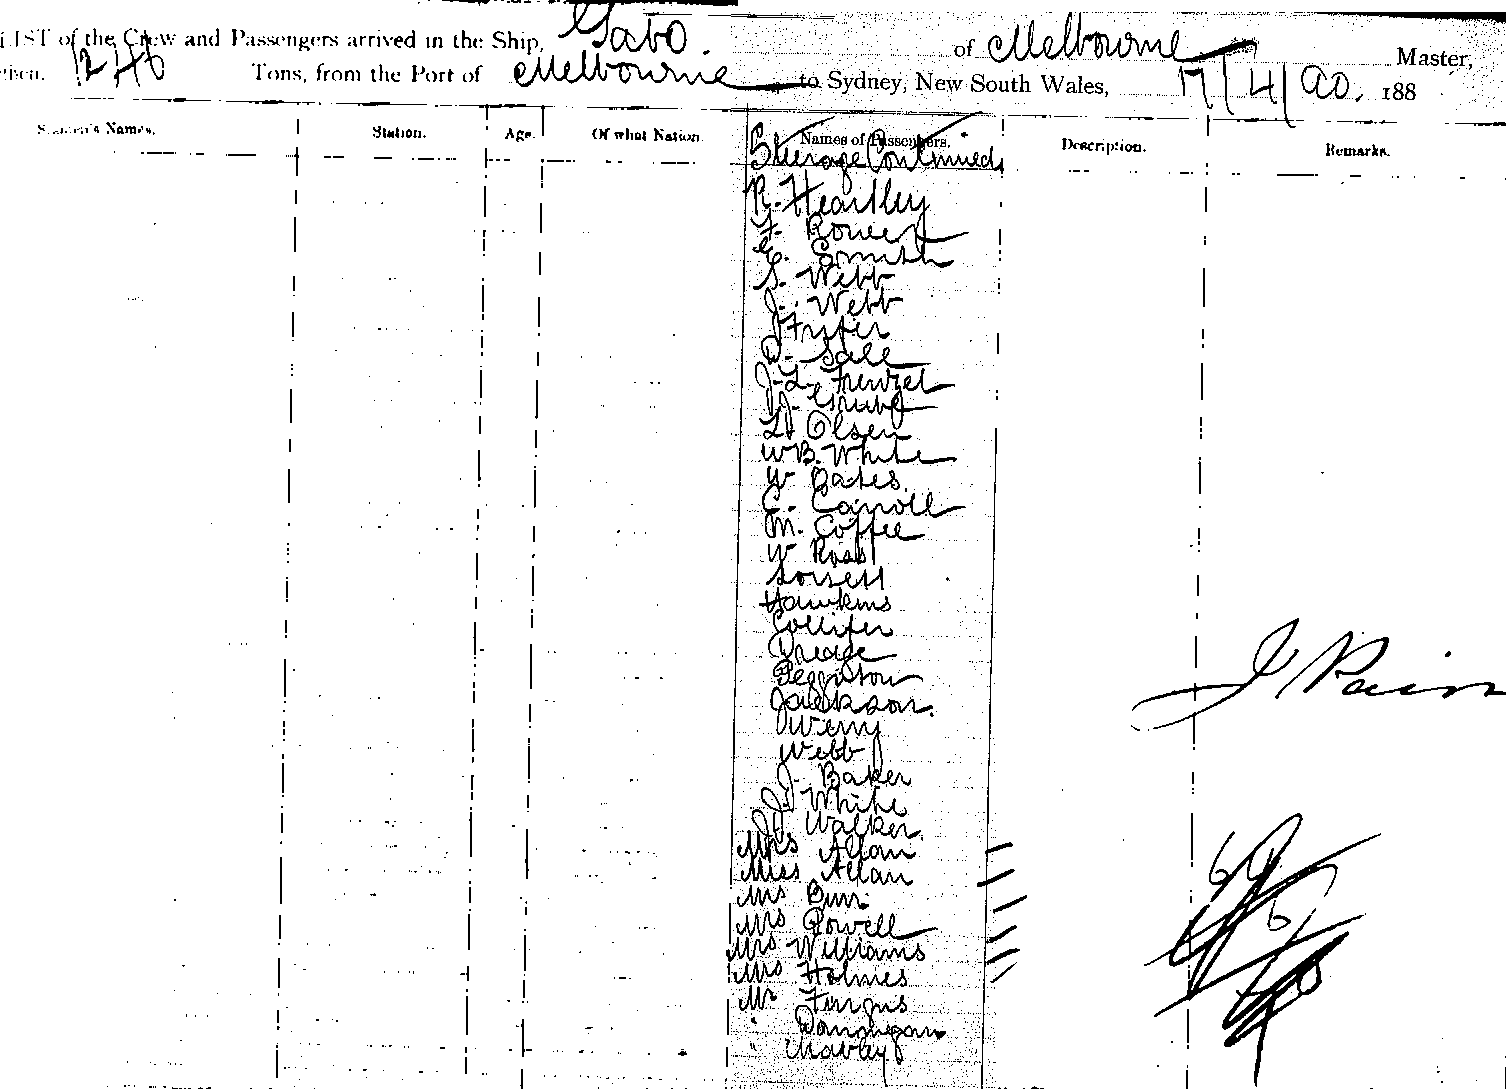 LIST of the Crew and Passengers arrived in the Ship, Gabo. of Melbourne Master,
1246 Tons, from the Port of Melbourne to Sydney, New South Wales, 17/4/90. 188
Names. Station. Age. Of what Nation. Names of Passengers. Description. Remarks.
Steerage Continued
R. Heartley
F. Bowen
E. Smith
S. Webb
J. Webb
D. Sale
J.L. Frenzel
L. Olsen
W.B. White
W Oates.
C. Carroll
M. Coffee
W Ross
Hawkins
Collifer
Jackson.
Werry
Webb
J. Baker
J. White
J. Walker.
Mrs Allan
Miss Allan
Mrs
Mrs Powell
Mrs Williams
Mrs Holmes
Mr Fergus
Donnegan
J Pain
69
6